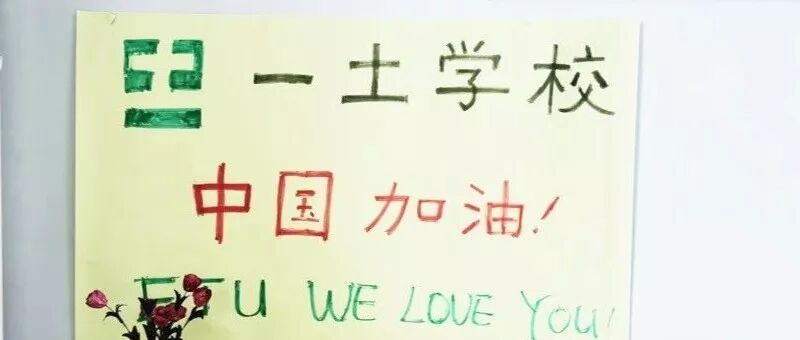 一土学校
中国加油!
ETU WE LOVE YOU!